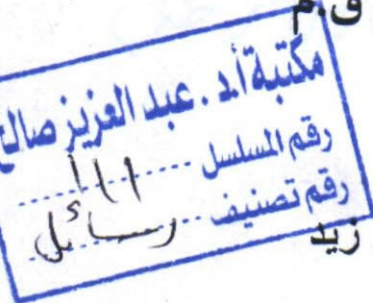 ق.م
مكتبة أ.د. عبد العزيز صالح
رقم المسلسل ١١١
رقم تصنيف رسائل
زيد